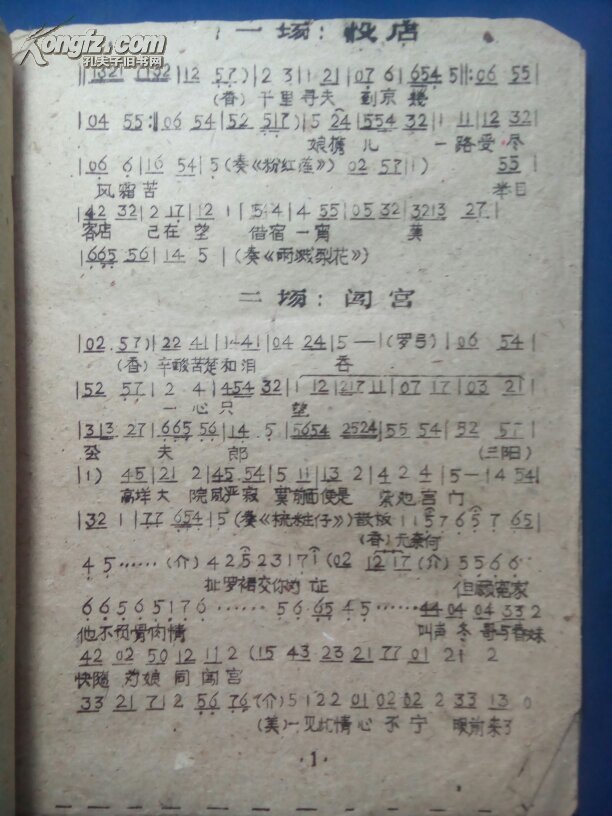 Kongfz.com
孔夫子旧书网
一场：投店
||1321 7132|12 57)|2 3|1 21|07 6|654 5||:06 55|
(香)千里寻夫 到京
|04 55:||06 54|52 517)|5 24|554 32|1 11|12 32|
娘携儿 一路受尽
|06 6|16 54|5(奏《粉红莲》)02 57|1) 55|
风霜苦 举目
|42 32|2 17|12 1|54 4|4 55|05 32|3213 27|
客店 己在望 借宿一宵 美
|665 56|14 5|(奏《雨溅梨花》)
二场：闯宫
|02 57)|22 41|1441|04 24|5 —|(罗弓)|06 54|
(香)辛酸苦楚和泪 吞
|52 57|2 4|454 32|1 12|217 11|07 17|03 21|
一心只 望
|313 27|665 56|14 5|5654 2524|55 54|52 57|
夫 郎 (三阳)
|1) 45|21 2|45 54|5 11|13 2|4 2 4|5 —|4 54|
高垟大 院威严寂 前面便是 宫门
|32 1|77 654|5(奏《梳粧仔》)散板 1 1 5 7 6 5 7 65|
(香)无奈何
4 5……(介)4 2 5 2 3 1 7 1(02 12 17(介)5 5 6 6
扯罗裙交你为证 但愿冤家
6 6 5 6 5 1 7 6……5 6 65 4 5……44 04 04 33 2
他不负骨肉情 叫声 冬 哥与春妹
42 02 50 12 11 2(15 43 23 21 77 01 21 2
快随 为娘 同 闯宫
33 21 71 2 56 76(介)5 1 22 01 02 02 2 33 13 0
(美)一见此情心不宁 眼前来了
·1·